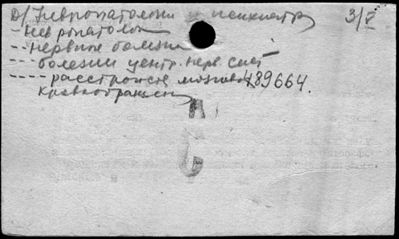 Д/Невропатология и психиатр 3/V
- Невропатолог
-- нервные болезни
--- болезни центр. нерв. сист
---- расстройств мозгового 489664.
кровообращен
А
С